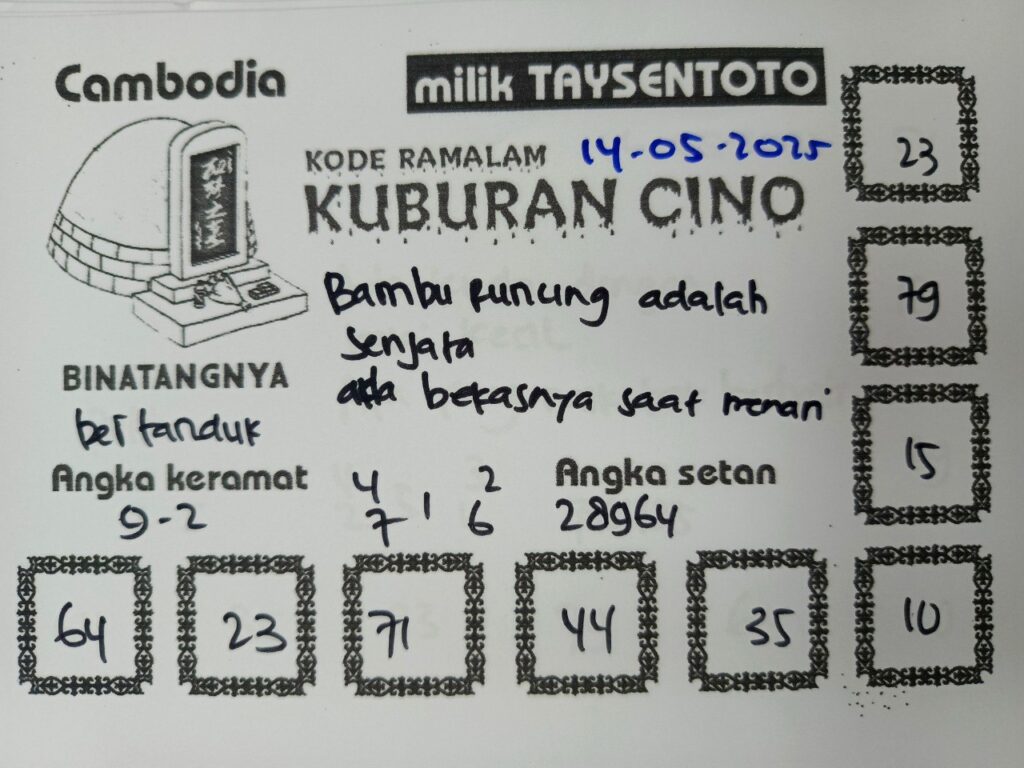 Cambodia
milik TAYSENTOTO
KODE RAMALAM
14-05-2025
KUBURAN CINO
Bambu runcing adalah
senjata
ada bekasnya saat menari
BINATANGNYA
bertanduk
Angka keramat
9-2
4 2
1
7 6
Angka setan
28964
23
79
15
10
64
23
71
44
35